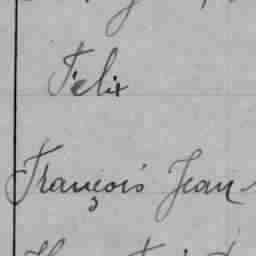 Félix
François Jean